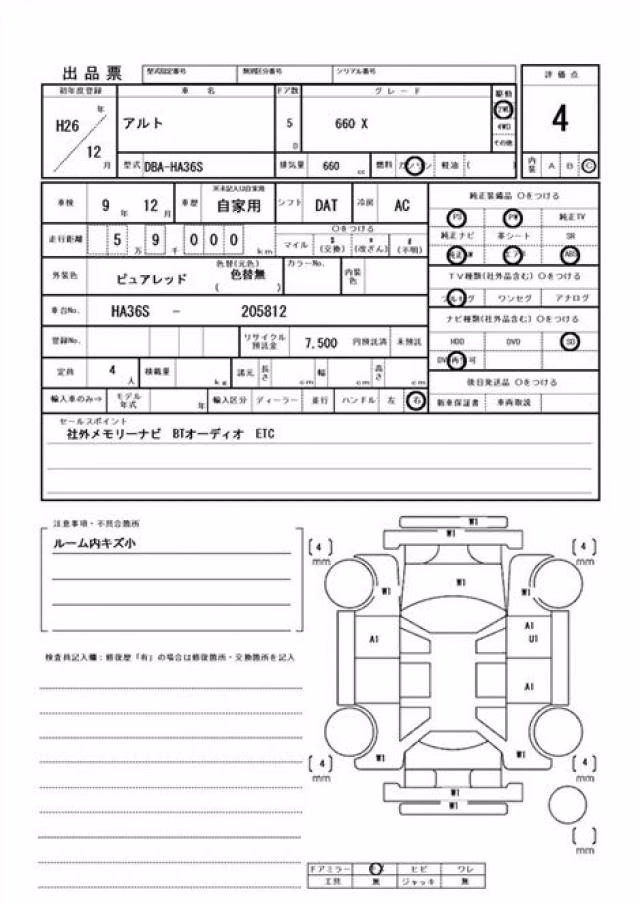 出品票 型式指定番号 類別区分番号 シリアル番号 評価点
初年度登録 車名 ドア数 グレード 駆動
H26 年 アルト 5 D 660 X 2WD 4WD その他 4
12 月 型式 DBA-HA36S 排気量 660 cc 燃料 ガソリン 軽油 ( ) 内装 A B C
車検 9 年 12 月 車歴 自家用 シフト DAT 冷房 AC 純正装備品 〇をつける
走行距離 5 万 9 千 0 0 0 km 〇をつける マイル $ (交換) * (改ざん) # (不明) PS PW 純正TV
純正ナビ 革シート SR
外装色 ピュアレッド 色替(元色) 色替無 ( ) カラーNo. 内装色 純正AW エアB ABS
TV種類(社外品含む) 〇をつける
フルセグ ワンセグ アナログ
車台No. HA36S - 205812 ナビ種類(社外品含む) 〇をつける
登録No. リサイクル預託金 7,500 円預託済 未預託 HDD DVD SD
定員 4 人 積載量 kg 諸元 長さ cm 幅 cm 高さ cm DVD再生可
後日発送品 〇をつける
輸入車のみ⇒ モデル年式 年 輸入区分 ディーラー 並行 ハンドル 左 右 新車保証書 車両取説
セールスポイント
社外メモリーナビ BTオーディオ ETC
注意事項・不具合箇所
ルーム内キズ小
検査員記入欄:修復歴「有」の場合は修復箇所・交換箇所を記入
W1
W1
[4] mm [4] mm
W1
W1 W1
A1 A1 U1
A1
W1 W1
[4] mm [4] mm
W1
W1
[ ] mm
ドアミラー キズ ヒビ ワレ
工具 無 ジャッキ 無